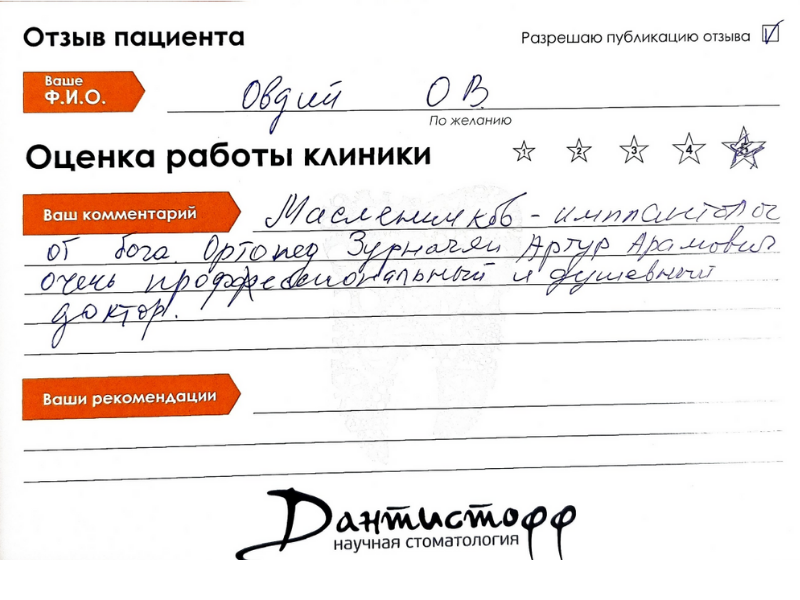 Отзыв пациента
Разрешаю публикацию отзыва
Ваше
Ф.И.О.
Овдий О В.
По желанию
Оценка работы клиники
1 2 3 4 5
Ваш комментарий
Маслеников - имплантолог
от бога. Ортопед Зурначян Артур Арамович
очень проффессиональный и душевный
доктор.
Ваши рекомендации
Дантистофф
научная стоматология